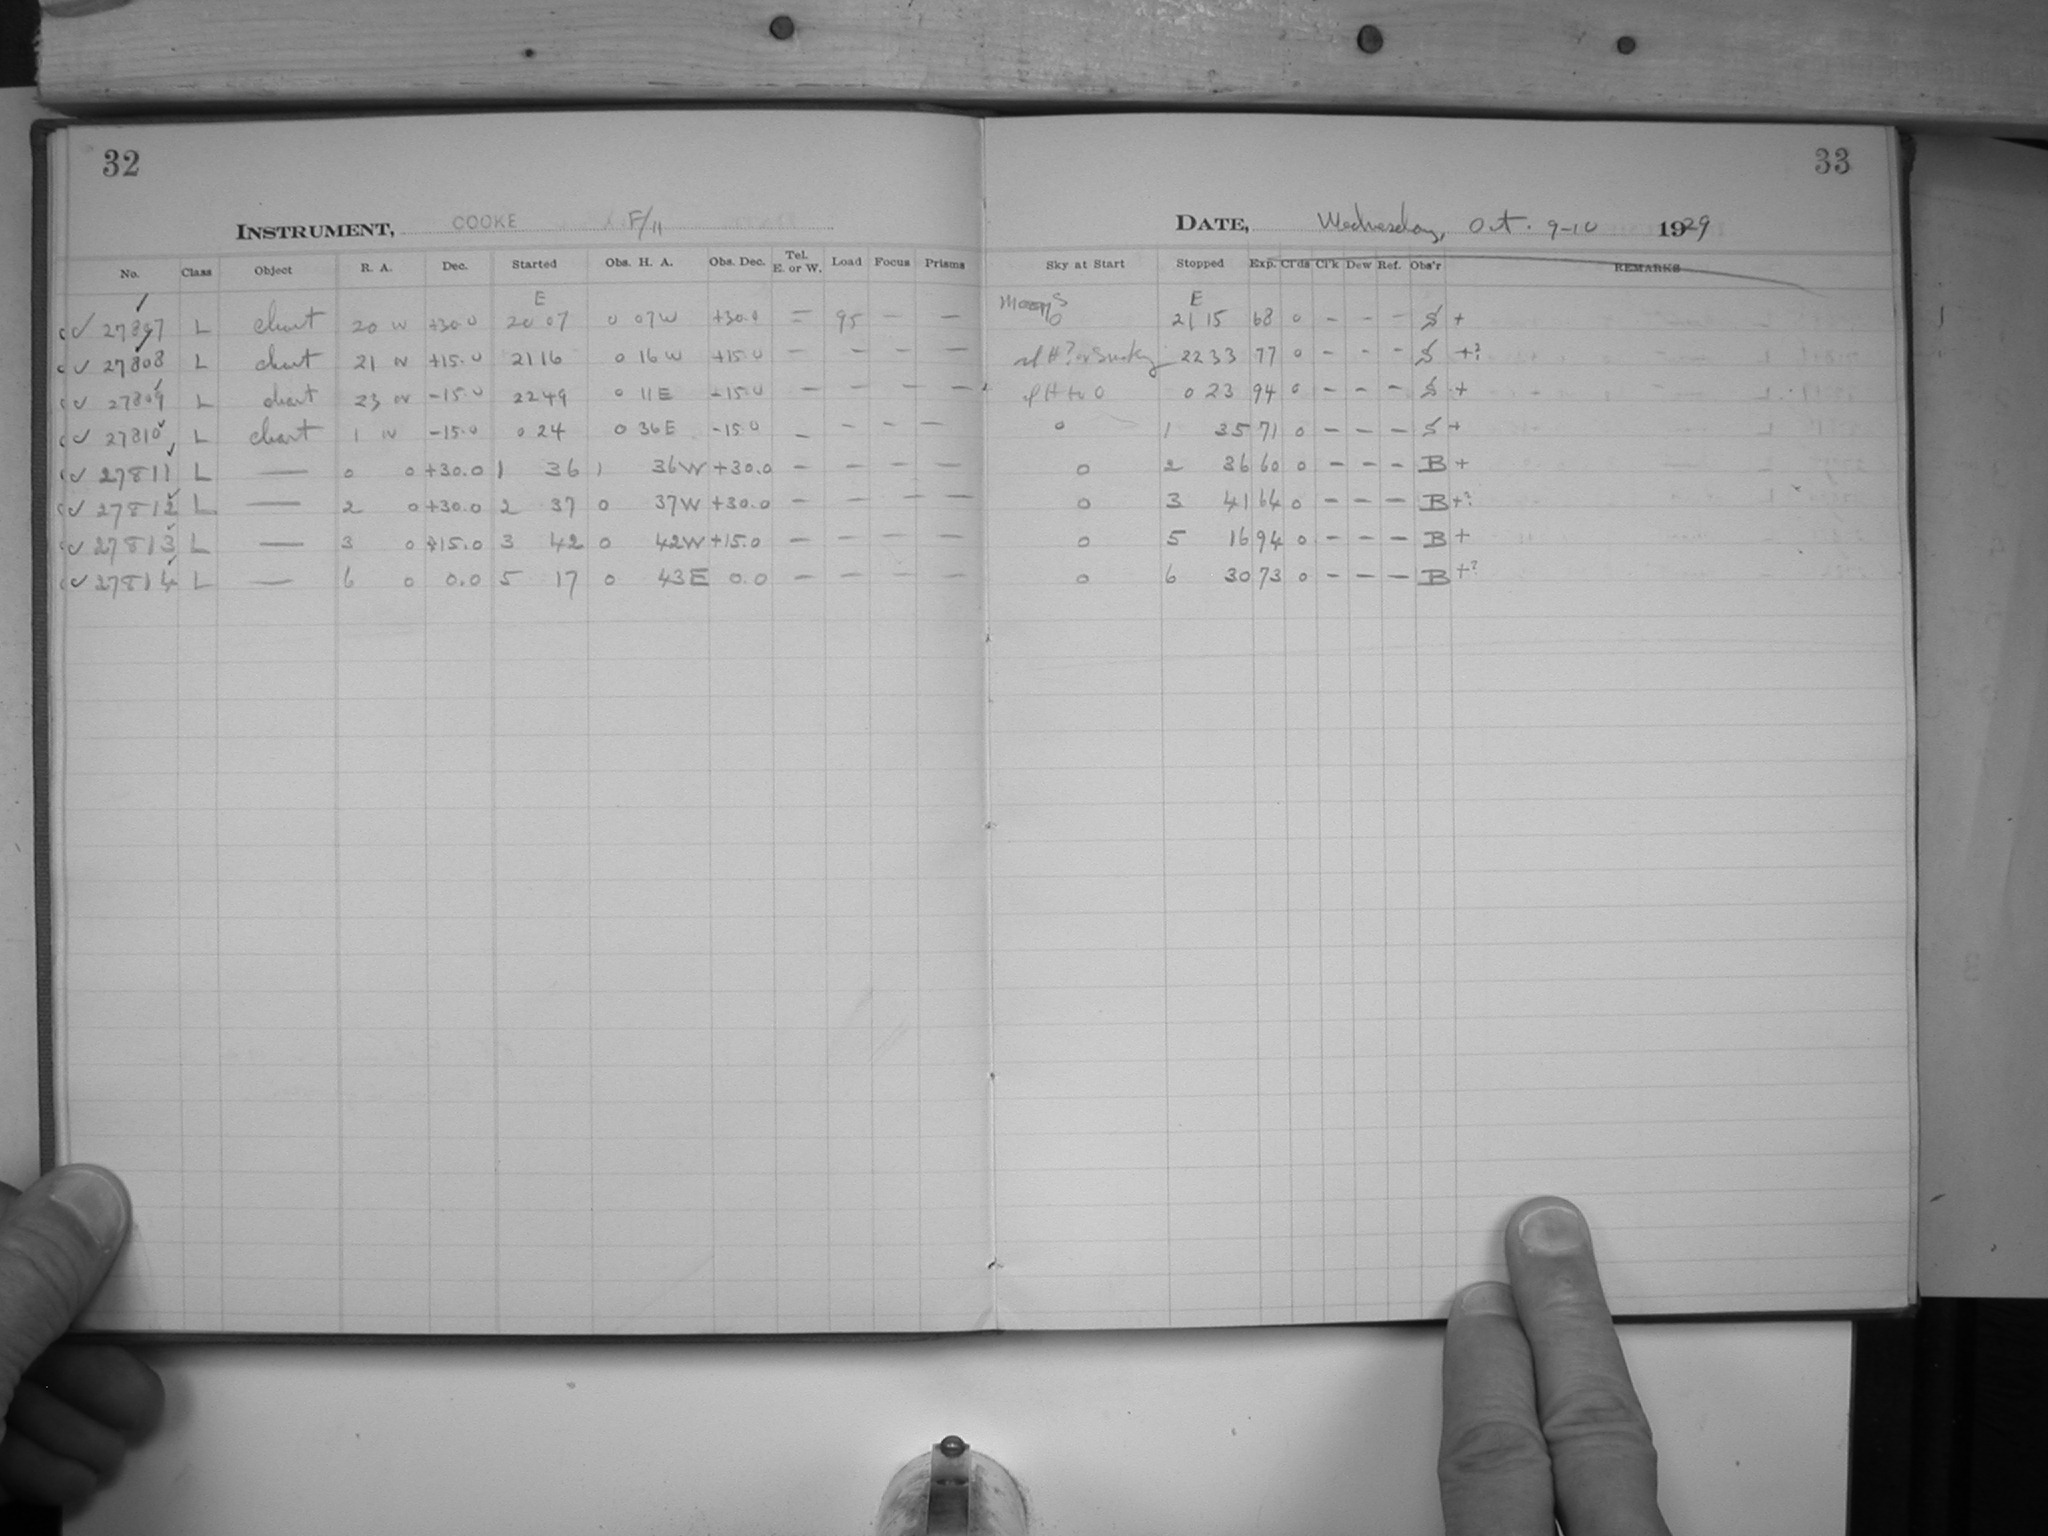 32
33
INSTRUMENT, COOKE F/11
DATE, Wednesday, Oct. 9-10 1929
No. Class Object R. A. Dec. Started Obs. H. A. Obs. Dec. Tel. E. or W. Load Focus Prisms Sky at Start Stopped Exp. Cl'ds Cl'k Dew Ref. Obs'r REMARKS
E E
27807 L chart 20 +30.0 20 07 0 07W +30.0 = 95 — — 0 21 15 68 0 - - - S +
27808 L chart 21 +15.0 21 16 0 16W +15.0 — — — — 22 33 77 0 - - - S +?
27809 L chart 23 -15.0 22 49 0 11E -15.0 — — — — 0 23 94 0 - - - S +
27810 L chart 1 -15.0 0 24 0 36E -15.0 — — — — 0 1 35 71 0 - - - S +
27811 L — 0 0 +30.0 1 36 1 36W +30.0 — — — — 0 2 36 60 0 - - - B +
27812 L — 2 0 +30.0 2 37 0 37W +30.0 — — — — 0 3 41 64 0 - - - B +?
27813 L — 3 0 +15.0 3 42 0 42W +15.0 — — — — 0 5 16 94 0 - - - B +
27814 L — 6 0 0.0 5 17 0 43E 0.0 — — — — 0 6 30 73 0 - - - B +?